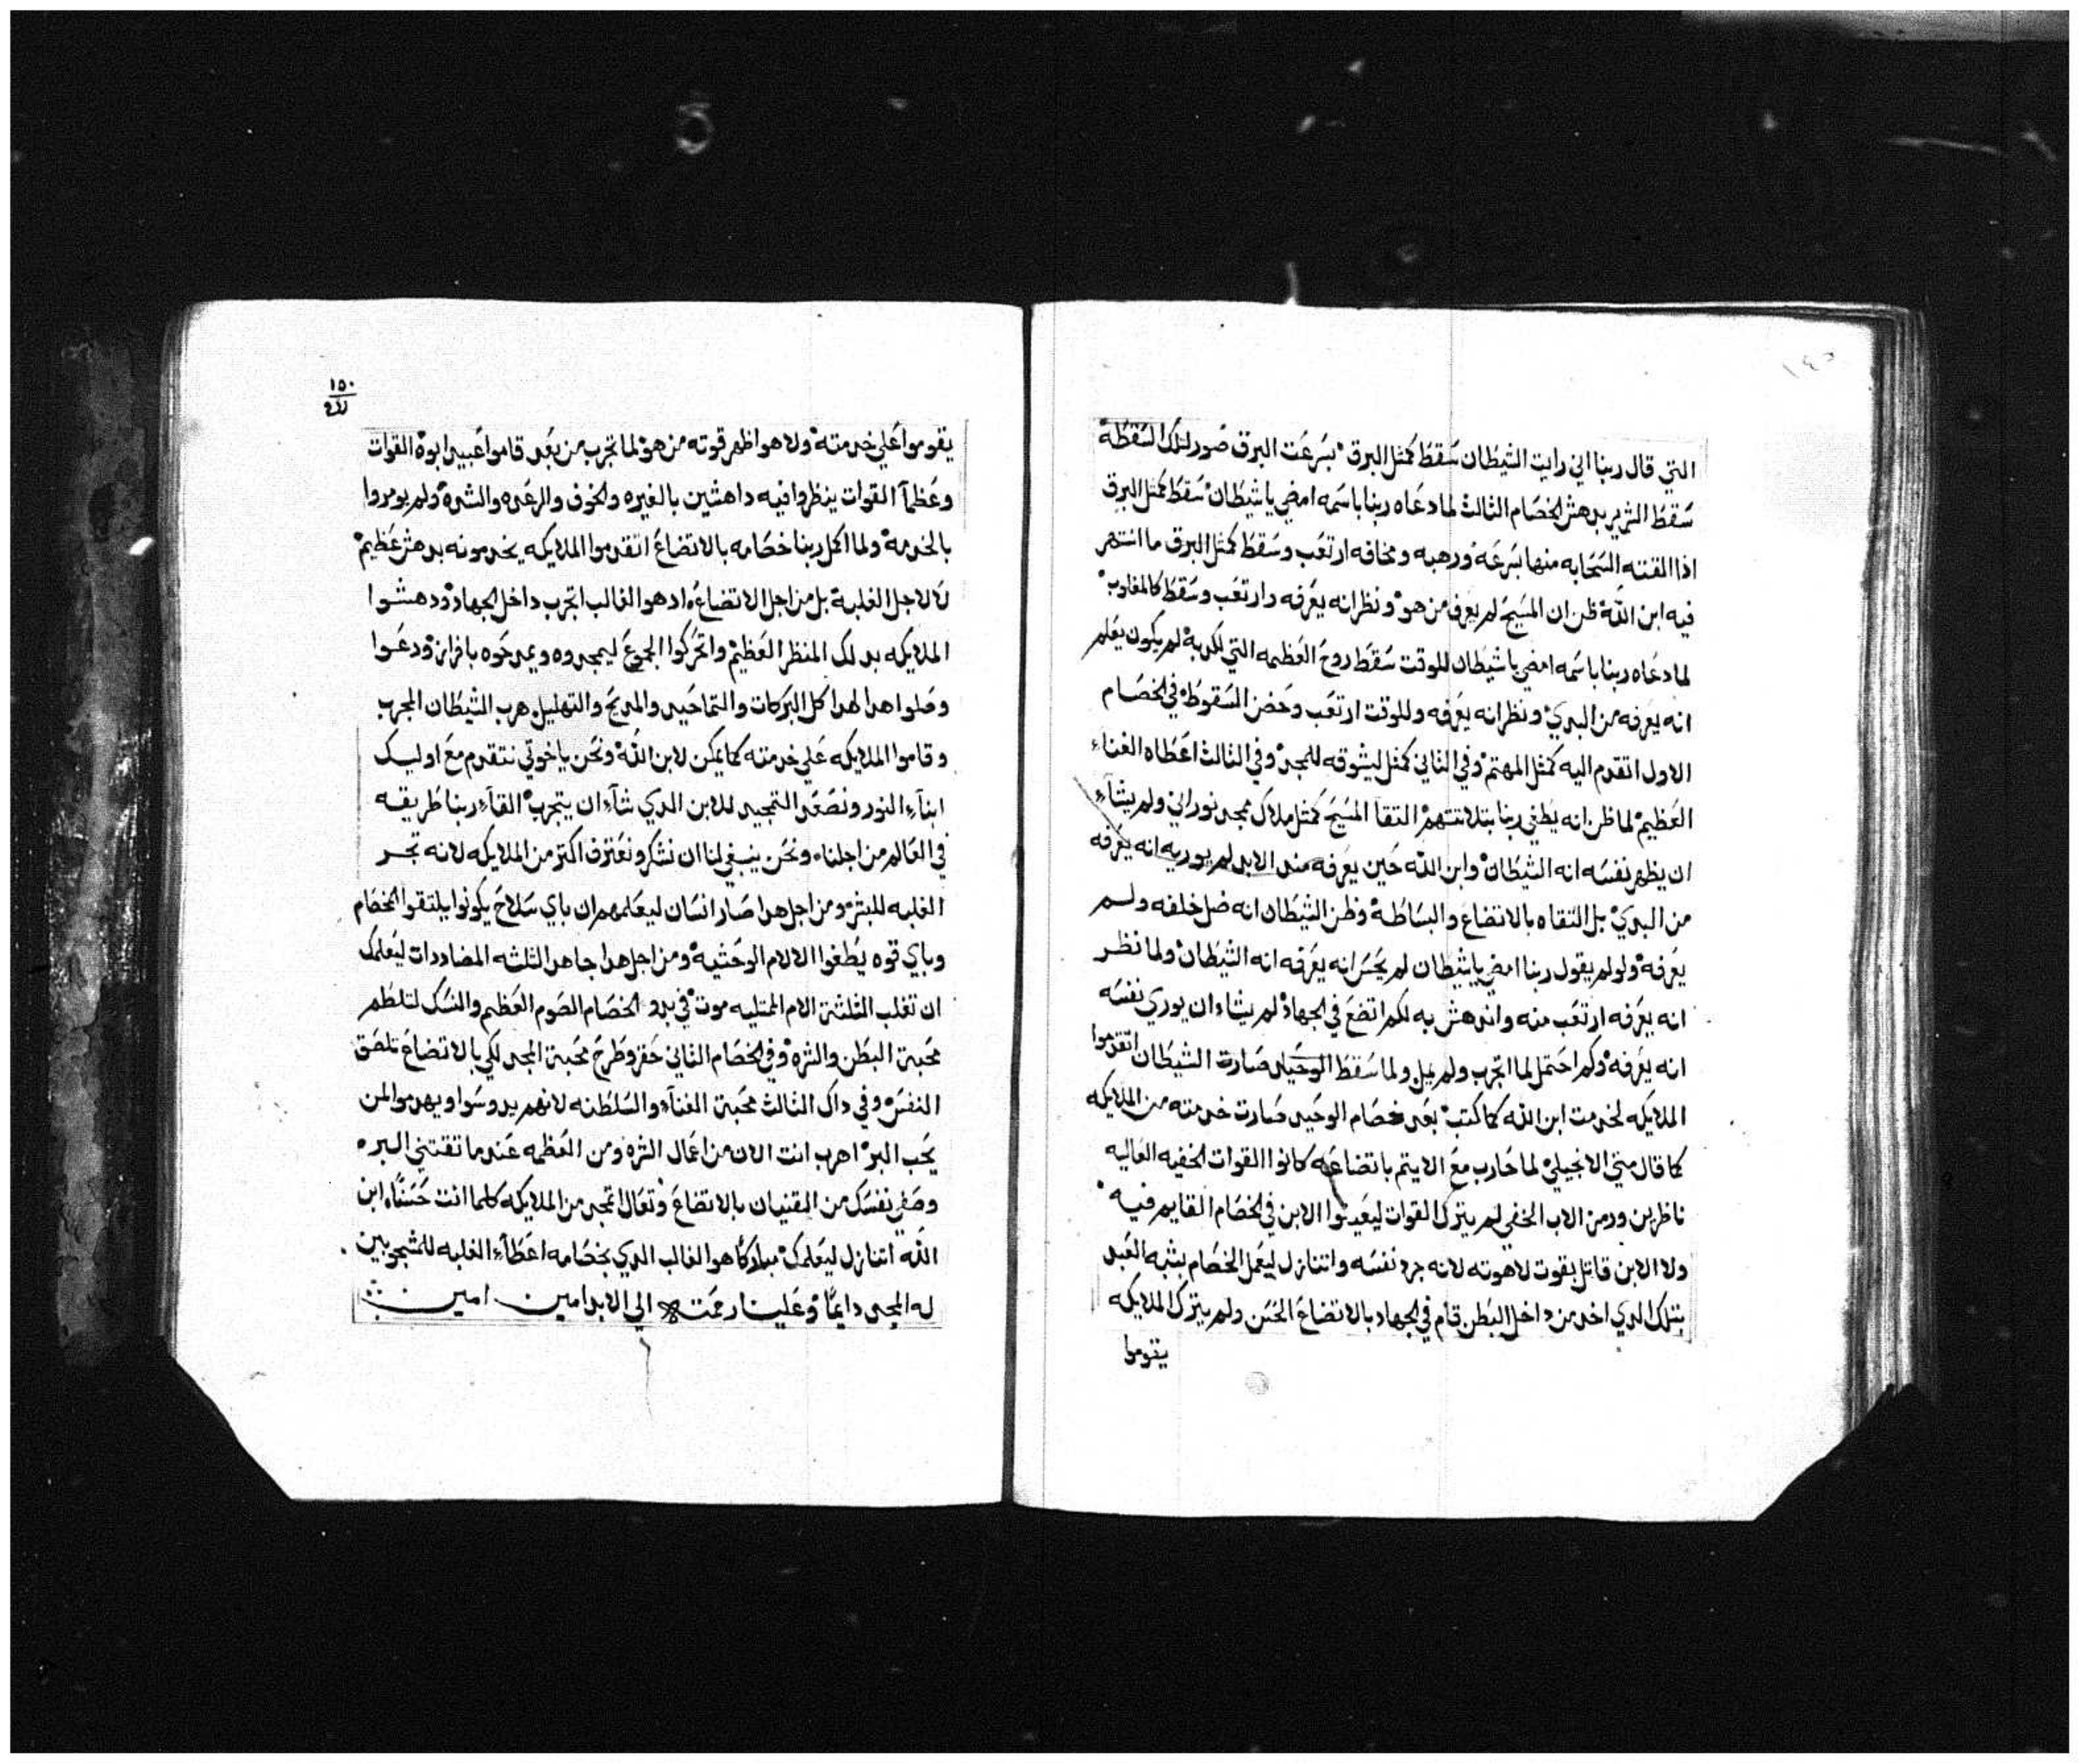 ١٤٥
التي قال ربنا اني رايت الشيطان سقط كمثل البرق بسرعت البرق صور لتلك السقطة
سقط الشرير بدهش الخصام الثالث لما دعاه ربنا باسمه امضي يا شيطان سقط كمثل البرق
اذا القته السحابه منها بسرعه ورهبه ومخافه ارتعب وسقط كمثل البرق ما انتهر
فيه ابن الله ظن ان المسيح لم يعرف من هو ونظر انه يعرفه وارتعب وسقط كالمغلوب
لما دعاه ربنا باسمه امضي يا شيطان للوقت سقط روح العظمه التي لم يكون يعلم
انه يعرفه من البدي ونظر انه يعرفه وللوقت ارتعب وحضن السقوط في الخصام
الاول اتقدم اليه كمثل المهتم وفي الثاني كمثل ليشوقه للمجد وفي الثالث اعطاه الغناء
العظيم لما ظن انه يطغي ربنا بتلاتتهم التقا المسيح كمثل ملاك مجد نوراني ولم يشاء
ان يظهر نفسه انه الشيطان وابن الله حين يعرفه منذ الابد لم يوريه انه يعرفه
من البدي بل التقاه بالاتضاع والبساطة وظن الشيطان انه ضل خلفه ولم
يعرفه ولو لم يقول ربنا امضي يا شيطان لم يحس انه يعرفه انه الشيطان ولما نظر
انه يعرفه ارتعب منه واندهش به لكم اتضع في الجهاد لم يشاء ان يوري نفسه
انه يعرفه وكم احتمل لما اتجرب ولم يمل ولما سقط الوحيد صارت الشيطان اتقدموا
الملايكه لخدمت ابن الله كما كتب بعد خصام الوحيد صارت خدمته من الملايكه
كما قال متي الانجيلي لما حارب مع الايتم باتضاعه كانوا القوات الخفيه العاليه
ناظرين ورمز الاب الخفي لم يترك القوات ليعينوا الابن في الخصام القايم فيه
ولا الابن قاتل بقوت لاهوته لانه جرد نفسه واتنازل ليعمل الخصام بشبه العبد
بتلك الذي اخد من داخل البطن قام في الجهاد بالاتضاع الحسن ولم يترك الملايكه
يقوموا
١٥٠
يقوموا علي خدمته ولا هو اظهر قوته من هو لما تجرب من بعد قاموا عبيد ابوه القوات
وعظمآ القوات ينظروا فيه داهشين بالغيره والخوف والرعده والشده ولم يومروا
بالخدمة ولما اكمل ربنا خصامه بالاتضاع اتقدموا الملايكه يخدمونه بدهش عظيم
لا لاجل الغلبة بل من اجل الاتضاع اد هو الغالب اتجرب داخل الجهاد ودهشوا
الملايكه بدلك المنظر العظيم واتحركوا الجموع ليمجدوه ويمدحوه بافرازٍ ودعوا
وصلوا هدا لهدا كل البركات والتماحيد والمديح والتهليل هرب الشيطان المجرب
وقاموا الملايكه علي خدمته كما يمكن لابن الله ونحن يا خوتي نتقدم مع اوليك
ابنآء النور ونصعد التمجيد للابن الدي شآء ان يتجرب القآء ربنا طريقه
في العالم من اجلنا ونحن ينبغي لنا ان نشكر ونعترف اكتر من الملايكه لانه تجر
الغلبه للبشر ومن اجل هدا صار انسان ليعلمهم ان باي سلاح يكونوا يلتقوا الخصام
وباي قوه يطغوا الالام الوحشيه ومن اجل هدا جاهد الثلثه المضاددات ليعلمك
ان تغلب الثلثة الام الممتليه موت في بدو الخصام الصوم العظيم والنسك لتلطم
محبة البطن والشره وفي الخصام الثاني حقر وطرح محبة المجد لكي بالاتضاع تلصق
النفس وفي داك الثالث محبة الغناء والسلطنه لانهم يدوسوا ويهدموا لمن
يحب البر اهرب انت الان من اعمال الشره ومن العظمه عندما تقتني البره
وصغر نفسك من القنيان بالاتضاع وتعال اتمجد من الملايكه كلما انت حسناً ابن
الله اتنازل ليعلمك مباركا هو الغالب الدي بخصامه اعطآء الغلبه للمشجوبين
له المجد دايمًا وعلينا رحمته الي الابد امين امين